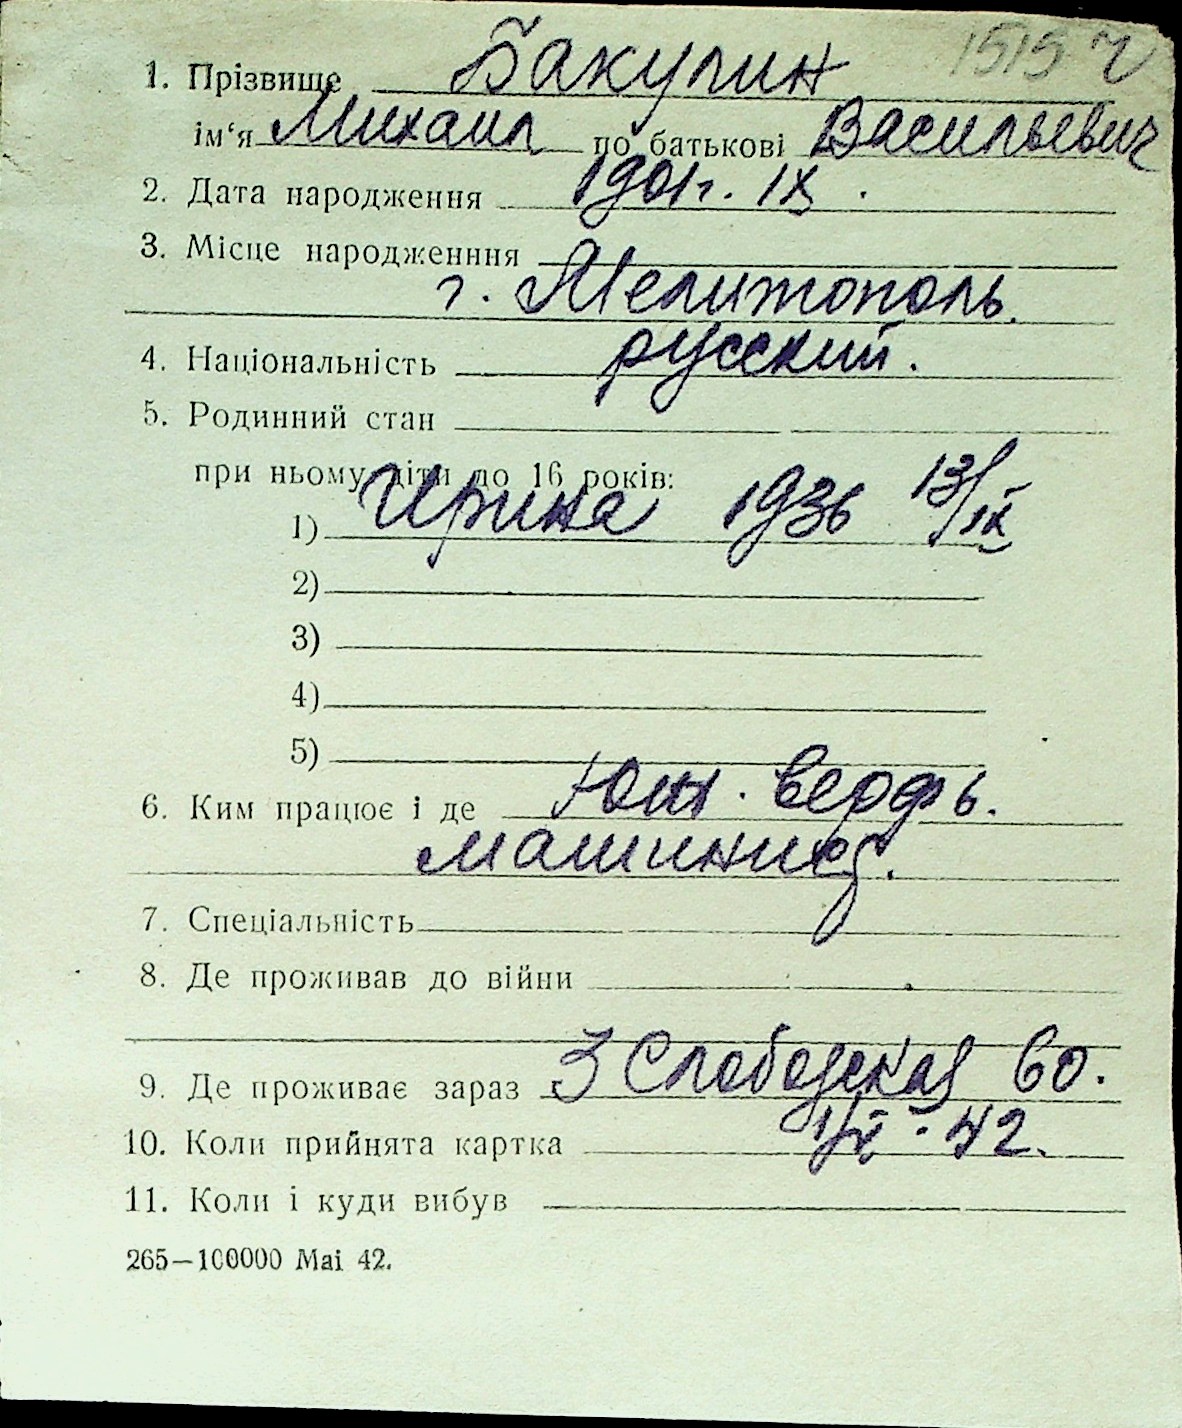 1515 ч
1. Прізвище Бакулин
ім‘я Михаил по батькові Васильевич
2. Дата народження 1901г. IX.
3. Місце народженння
г. Мелитополь.
4. Національність русский.
5. Родинний стан
при ньому діти до 16 років:
1) Ирина 1936 13/IX
2)
3)
4)
5)
6. Ким працює і де Южн. верфь.
машинист.
7. Спеціальність
8. Де проживав до війни
9. Де проживає зараз 3 Слободская 60.
10. Коли прийнята картка 1/IX-42.
11. Коли і куди вибув
265—100000 Mai 42.